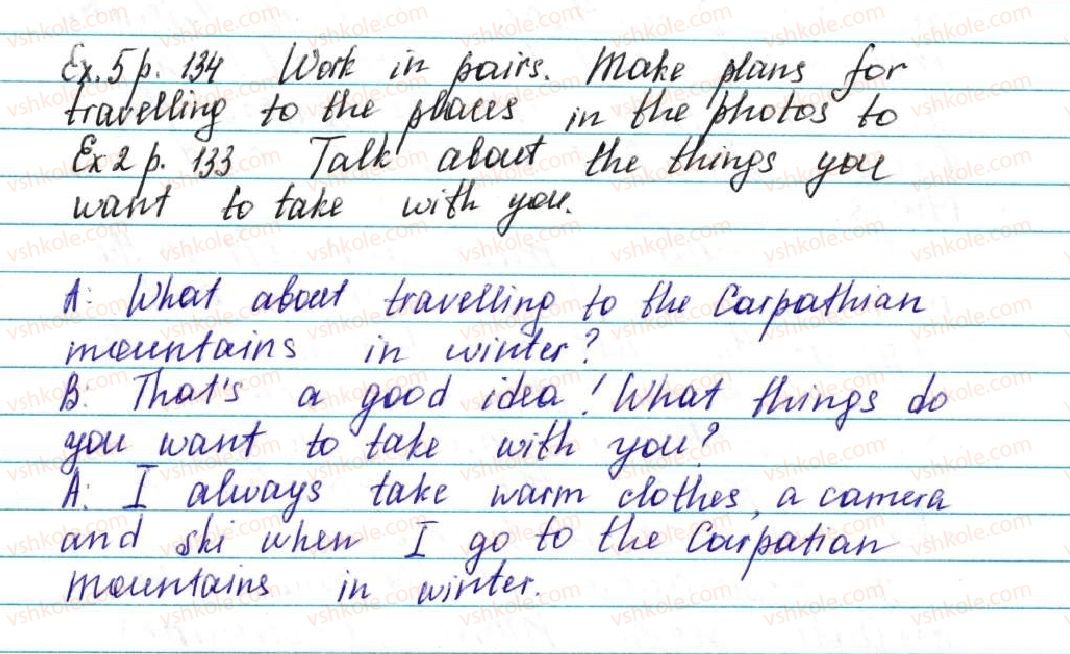 Ex. 5 p. 134 Work in pairs. Make plans for
travelling to the places in the photos to
Ex 2 p. 133 Talk about the things you
want to take with you.
A: What about travelling to the Carpathian
mountains in winter?
B: That's a good idea! What things do
you want to take with you?
A: I always take warm clothes, a camera
and ski when I go to the Carpatian
mountains in winter.